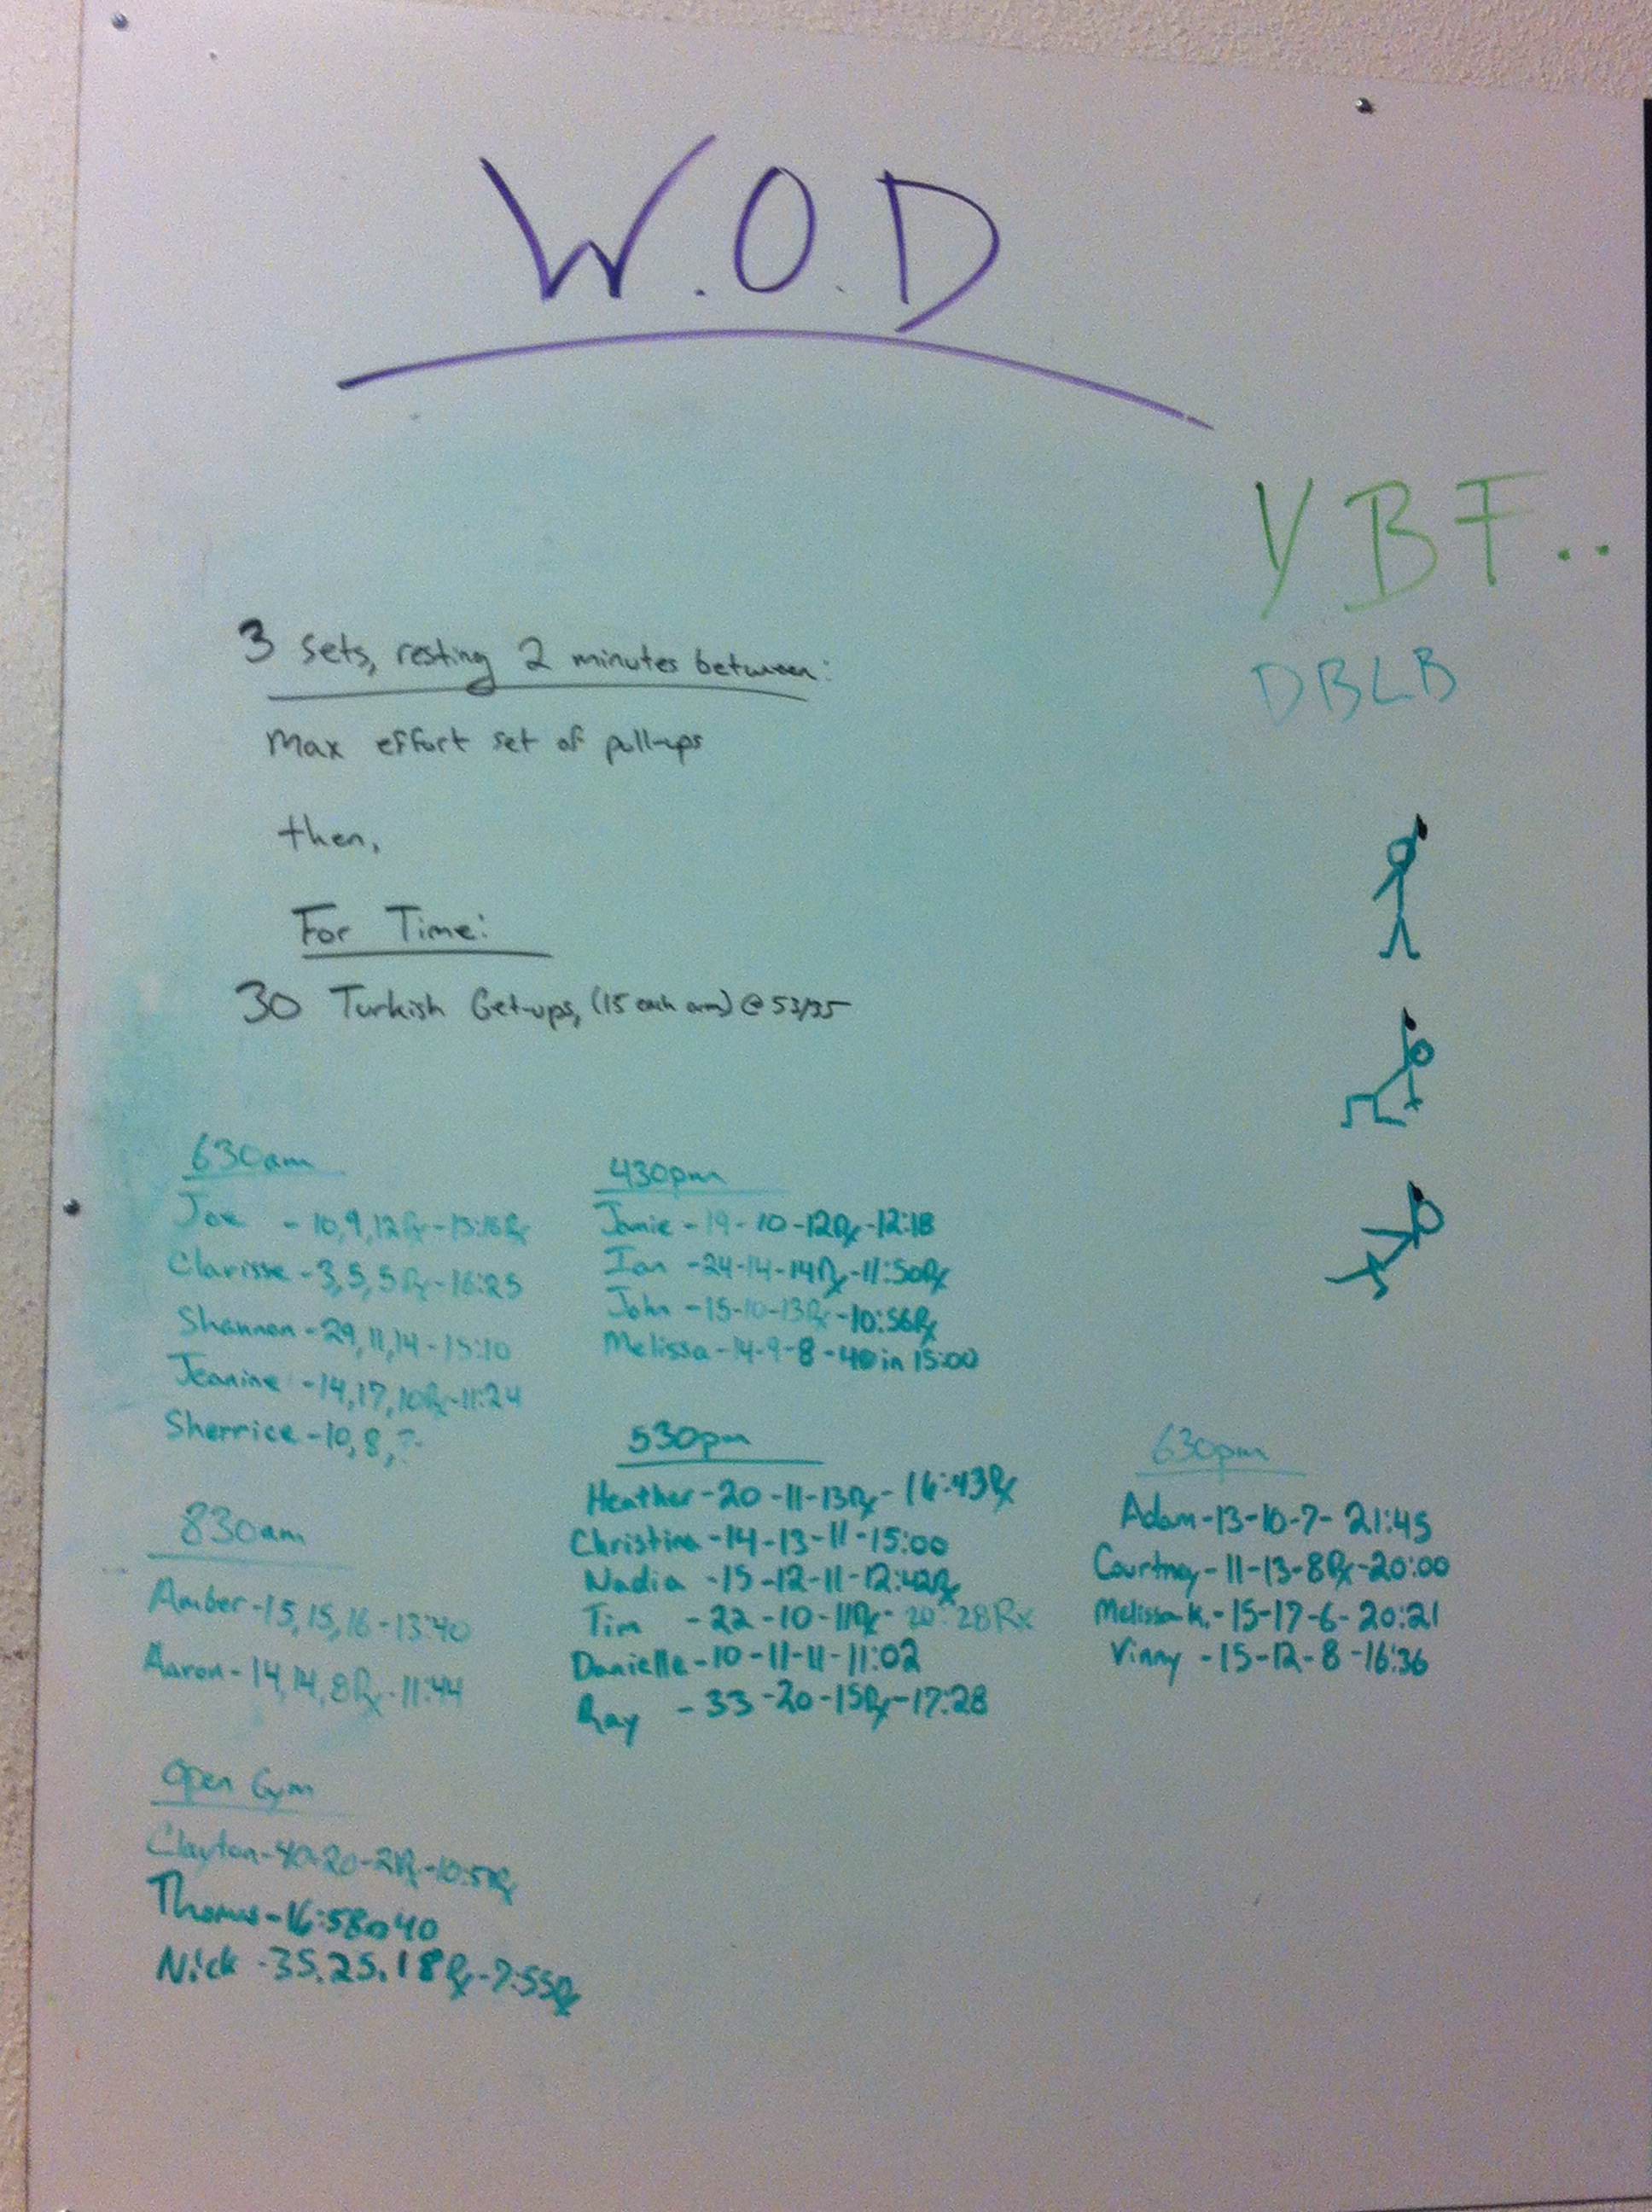 W.O.D
YBF..
DBLB
3 Sets, resting 2 minutes between:
Max effort set of pull-ups
then,
For Time:
30 Turkish Get-ups, (15 each arm) @ 53/35
630am
Joe - 10, 9, 12 Rx - 15:18 Rx
Clarisse - 3, 5, 5 Rx - 16:25
Shannon - 29, 11, 14 - 15:10
Jeanine - 14, 17, 10 Rx - 11:24
Sherrice - 10, 8, ?
830am
Amber - 15, 15, 16 - 13:40
Aaron - 14, 14, 8 Rx - 11:44
Open Gym
Clayton - 40-20-21 Rx
Thomas - 16:58
Nick - 35.25.18 Rx - 7:55 Rx
430pm
Jamie - 19 - 10 - 12 Rx - 12:18
Ian - 24-14-14 Rx - 11:50 Rx
John - 15-10-13 Rx - 10:56 Rx
Melissa - 14-9-8 - 40 in 15:00
530pm
Heather - 20 - 11 - 13 Rx - 16:43 Rx
Christine - 14 - 13 - 11 - 15:00
Nadia - 15 - 12 - 11 - 12:42 Rx
Tim - 22 - 10 - 11 Rx - 20:28 Rx
Danielle - 10 - 11 - 11 - 11:02
Ray - 33 - 20 - 15 Rx - 17:28
630pm
Adam - 13 - 10 - 7 - 21:45
Courtney - 11 - 13 - 8 Rx - 20:00
Melissa K. - 15 - 17 - 6 - 20:21
Vinny - 15 - 12 - 8 - 16:36